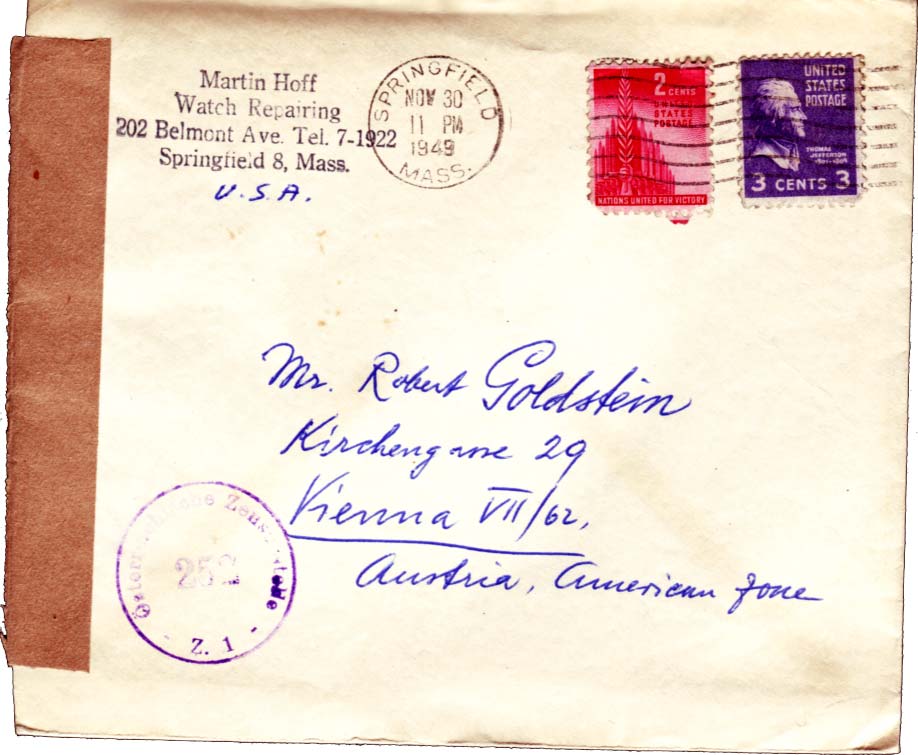 Martin Hoff
Watch Repairing
202 Belmont Ave. Tel. 7-1922
Springfield 8, Mass.
U.S.A.
SPRINGFIELD
NOV 30
11 PM
1949
MASS.
2 CENTS
UNITED
STATES
POSTAGE
NATIONS UNITED FOR VICTORY
UNITED
STATES
POSTAGE
THOMAS
JEFFERSON
1801-1809
3 CENTS 3
Mr. Robert Goldstein
Kirchengasse 29
Vienna VII/62,
Austria, American Zone
252
Z. 1